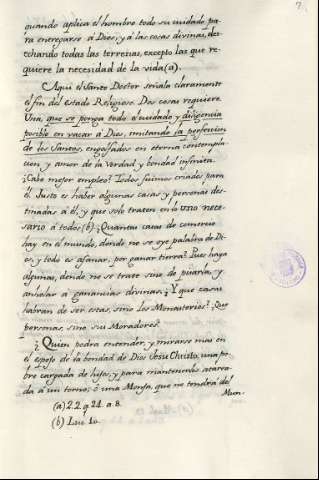 quando aplica el hombre todo su cuidado pa-
ra entregarse á Dios, y á las cosas divinas, des-
echando todas las terrenas, excepto las que re-
quiere la necesidad de la vida (a).
Aqui el Santo Doctor señala claramente
el fin del estado Religioso. Dos cosas requiere
Una, que se ponga todo el cuidado y diligencia
posible en vacar á Dios, imitando la perfeccion
de los Santos, engolfados en eterna contempla-
cion y amor de la Verdad y bondad infinita.
¿Cabe mejor empleo? Todos fuimos criados para
él. Justo es haber algunas casas y personas des-
tinadas á él, y que solo traten en lo uno nece-
sario á todos (b) ¿Quantas casas de comercio
hay en el mundo, donde no se oye palabra de Di-
os, y todo es afanar, por ganar tierra? Pues haya
algunas, donde no se trate sino de puarla, y
anhelar a ganancias divinas. ¿Y que casas
habran de ser estas, sino los Monasterios? ¿Que
personas, sino sus Moradores?
¿Quien podra entender, y mirarse mas en
el espejo de la bondad de Dios Jesu Christo, una po-
bre cargada de hijos, y para mantenerlos atarea-
da á un torno; ó una Monja, que no tendrá del
Mun-
(a) 2.2. q 24. a. 8.
(b) Luc 10.